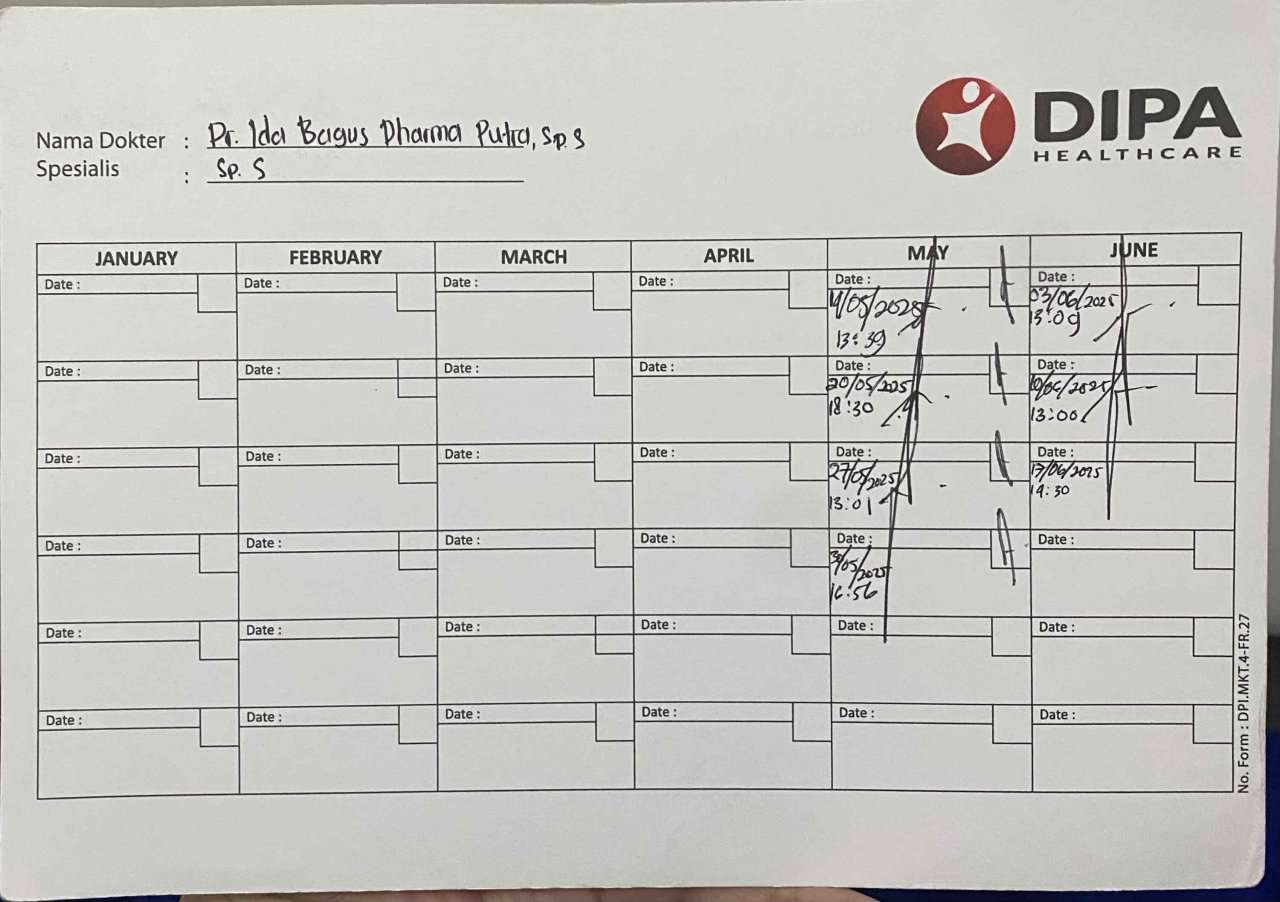 DIPA
HEALTHCARE
Nama Dokter : Dr. Ida Bagus Dharma Putra, Sp. S
Spesialis : Sp. S
JANUARY FEBRUARY MARCH APRIL MAY JUNE
Date : Date : Date : Date : Date : Date :
/05/2025 03/06/2025
13:39 13:09
Date : Date : Date : Date : Date : Date :
20/05/2025 10/06/2025
18:30 13:00
Date : Date : Date : Date : Date : Date :
27/05/2025 17/06/2025
13:01 14:30
Date : Date : Date : Date : Date : Date :
/05/2025
16:56
Date : Date : Date : Date : Date : Date :
Date : Date : Date : Date : Date : Date :
No. Form : DPI.MKT.4-FR.27